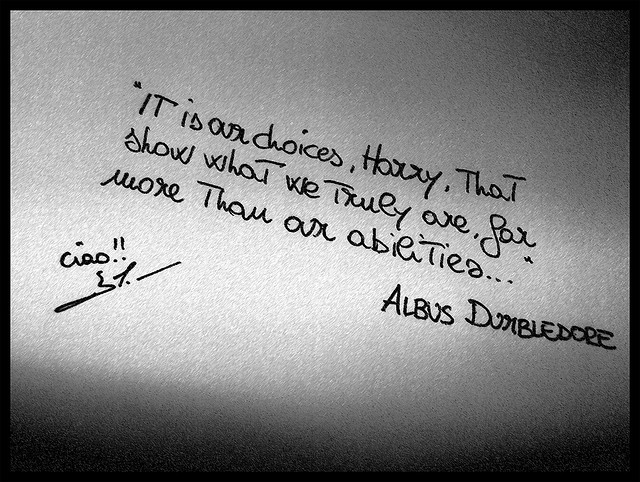 "IT is our choices, Harry, That
show what we Truly are, far
more Than our abilities..."
ciao!!
ALBUS DUMBLEDORE